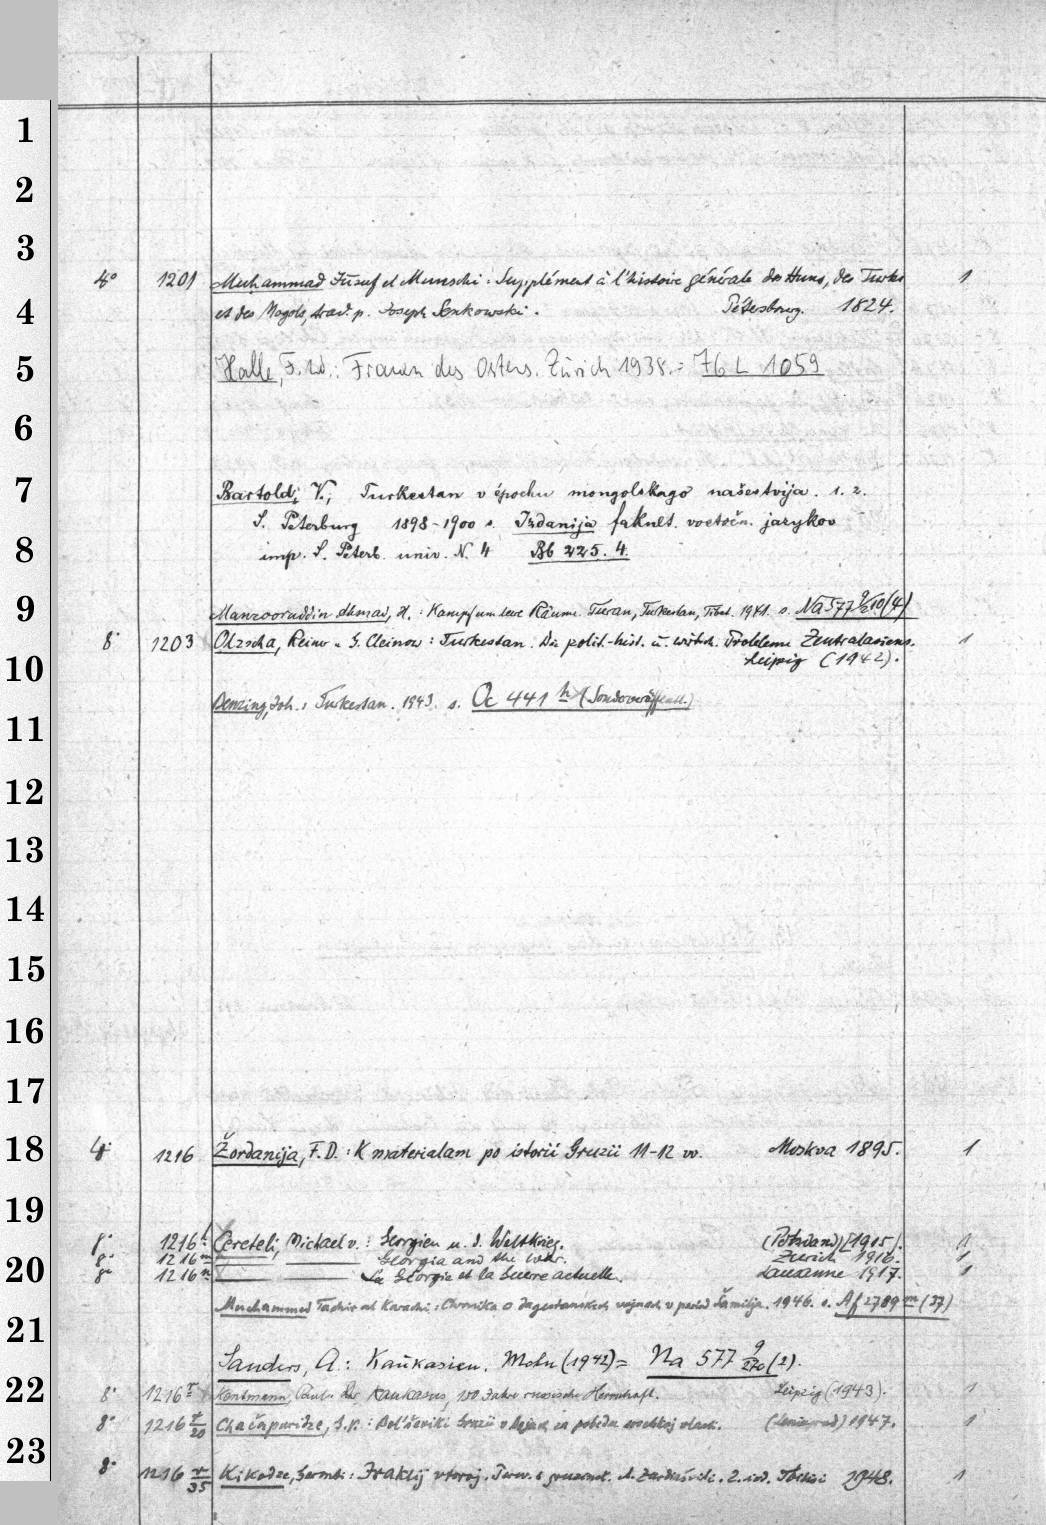 1
2
3
4° 1201 Muhammad Jusuf el Munschi: Supplément à l'histoire générale des Huns, des Turks 1
4 et des Mogols, trad. p. Joseph Senkowski. Pétersbourg. 1824.
5 Halle, F. W.: Frauen des Ostens. Zürich 1938.= 76 L 1059
6
7 Bartold, V., Turkestan v épochu mongolskago našestvija. 1. 2.
S. Peterburg 1898-1900 s. Izdanija fakult. vostočn. jazykov
8 imp. S. Peterb. univ. N. 4 Bb 225. 4.
9 Manzooruddin Ahmad, H.: Kampf um leere Räume. Turan, Turkestan, Tibet. 1941. s. Na 577
8° 1203 Olzscha, Reiner u. G. Cleinow: Turkestan. Die polit.-hist. u. wirtsch. Probleme Zentralasiens. 1
10 Leipzig (1942).
Benzing, Joh.: Turkestan. 1943. s. Oc 441 h (Sonderveröffentl.)
11
12
13
14
15
16
17
18 4° 1216 Žordanija, F. D.: K materialam po istorii Gruzii 11-12 vv. Moskva 1895. 1
19
8° 1216 l Cereteli, Michael v.: Georgien u. d. Weltkrieg. (Potsdam) [1915). 1
8° 1216 m Georgia and the War. Zurich 1916. 1
20 8° 1216 n La Géorgie et la Guerre actuelle. Lausanne 1917. 1
Muchammed Tachir al Karachi: Chronika o dagestanskich vojnach v period Šamilja. 1946. s. Af 2789 m (37)
21
Sanders, A.: Kaukasien. Mchn (1942)= Na 577 9/270 (2).
22 8° 1216 r Kaukasus, 150 Jahre russische Herrschaft. Leipzig (1943). 1
8° 1216 r/20 Chačapuridze, G. V.: Bol'ševiki Gruzii v bojach za pobedu sovetskoj vlasti. (Leningrad) 1947. 1
23 8° 1216 r/35 Kikodze, Geronti: Iraklij vtoroj. Perev. s gruzinsk. A. Zardušvili. 2. izd. Tbilisi 1948. 1